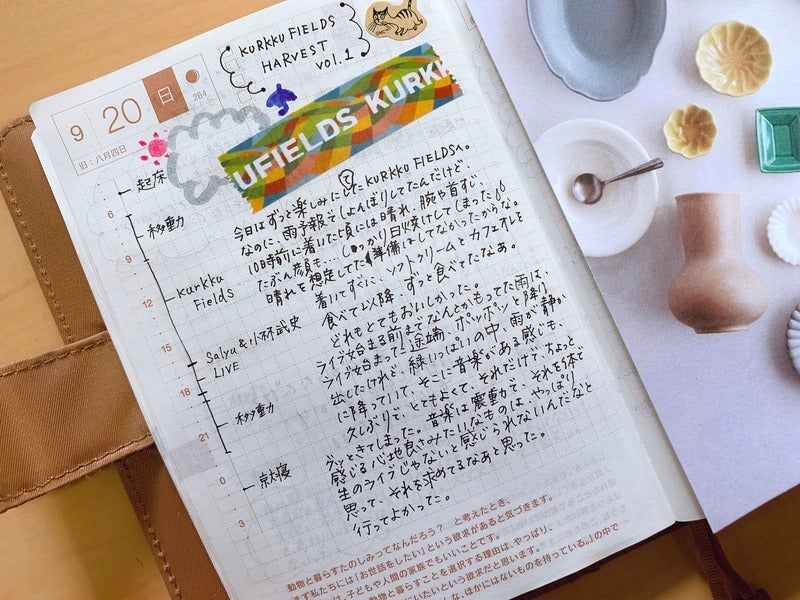 KURKKU FIELDS
HARVEST
vol.1
9 20 日
264
旧：八月四日
UFIELDS KURKK
起床
6
移動
9
kurkku
Fields
12
15
Salyu &小林武史
LIVE
18
移動
21
0
就寝
3
今日はずっと楽しみにしてたKURKKU FIELDSへ。
なのに、雨予報でしょんぼりしてたんだけど、
10時前に着いた頃には晴れ、腕や首すじ、
たぶん顔も… しっかり日焼けしてしまった
晴れを想定してた準備はしてなかったからな。
着いてすぐに、ソフトクリームとカフェオレを
食べて以降、ずっと食べてたなあ。
どれもとてもおいしかった。
ライブ始まる前までなんとかもってた雨は、
ライブ始まった途端、ポッポッと降り
出したけれど、緑いっぱいの中、雨が静か
に降っていて、そこに音楽がある感じも、
久しぶりで、とてもよくて、それだけで、ちょっと
グッときてしまった。音楽は震動で、それを体で
感じる心地良さみたいなものは、やっぱり
生のライブじゃないと感じられないんだなと
思って、それを求めてるなあと思った。
行ってよかった。
動物と暮らすたのしみってなんだろう？ と考えたとき、
まず私たちには「お世話をしたい」という欲求があると気づきます。
は、子どもや人間の家族でもいいことです。
動物と暮らすことを選択する理由は、やっぱり、
たいという欲求だと思います。
な、ほかにはないものを持っている。』の中で